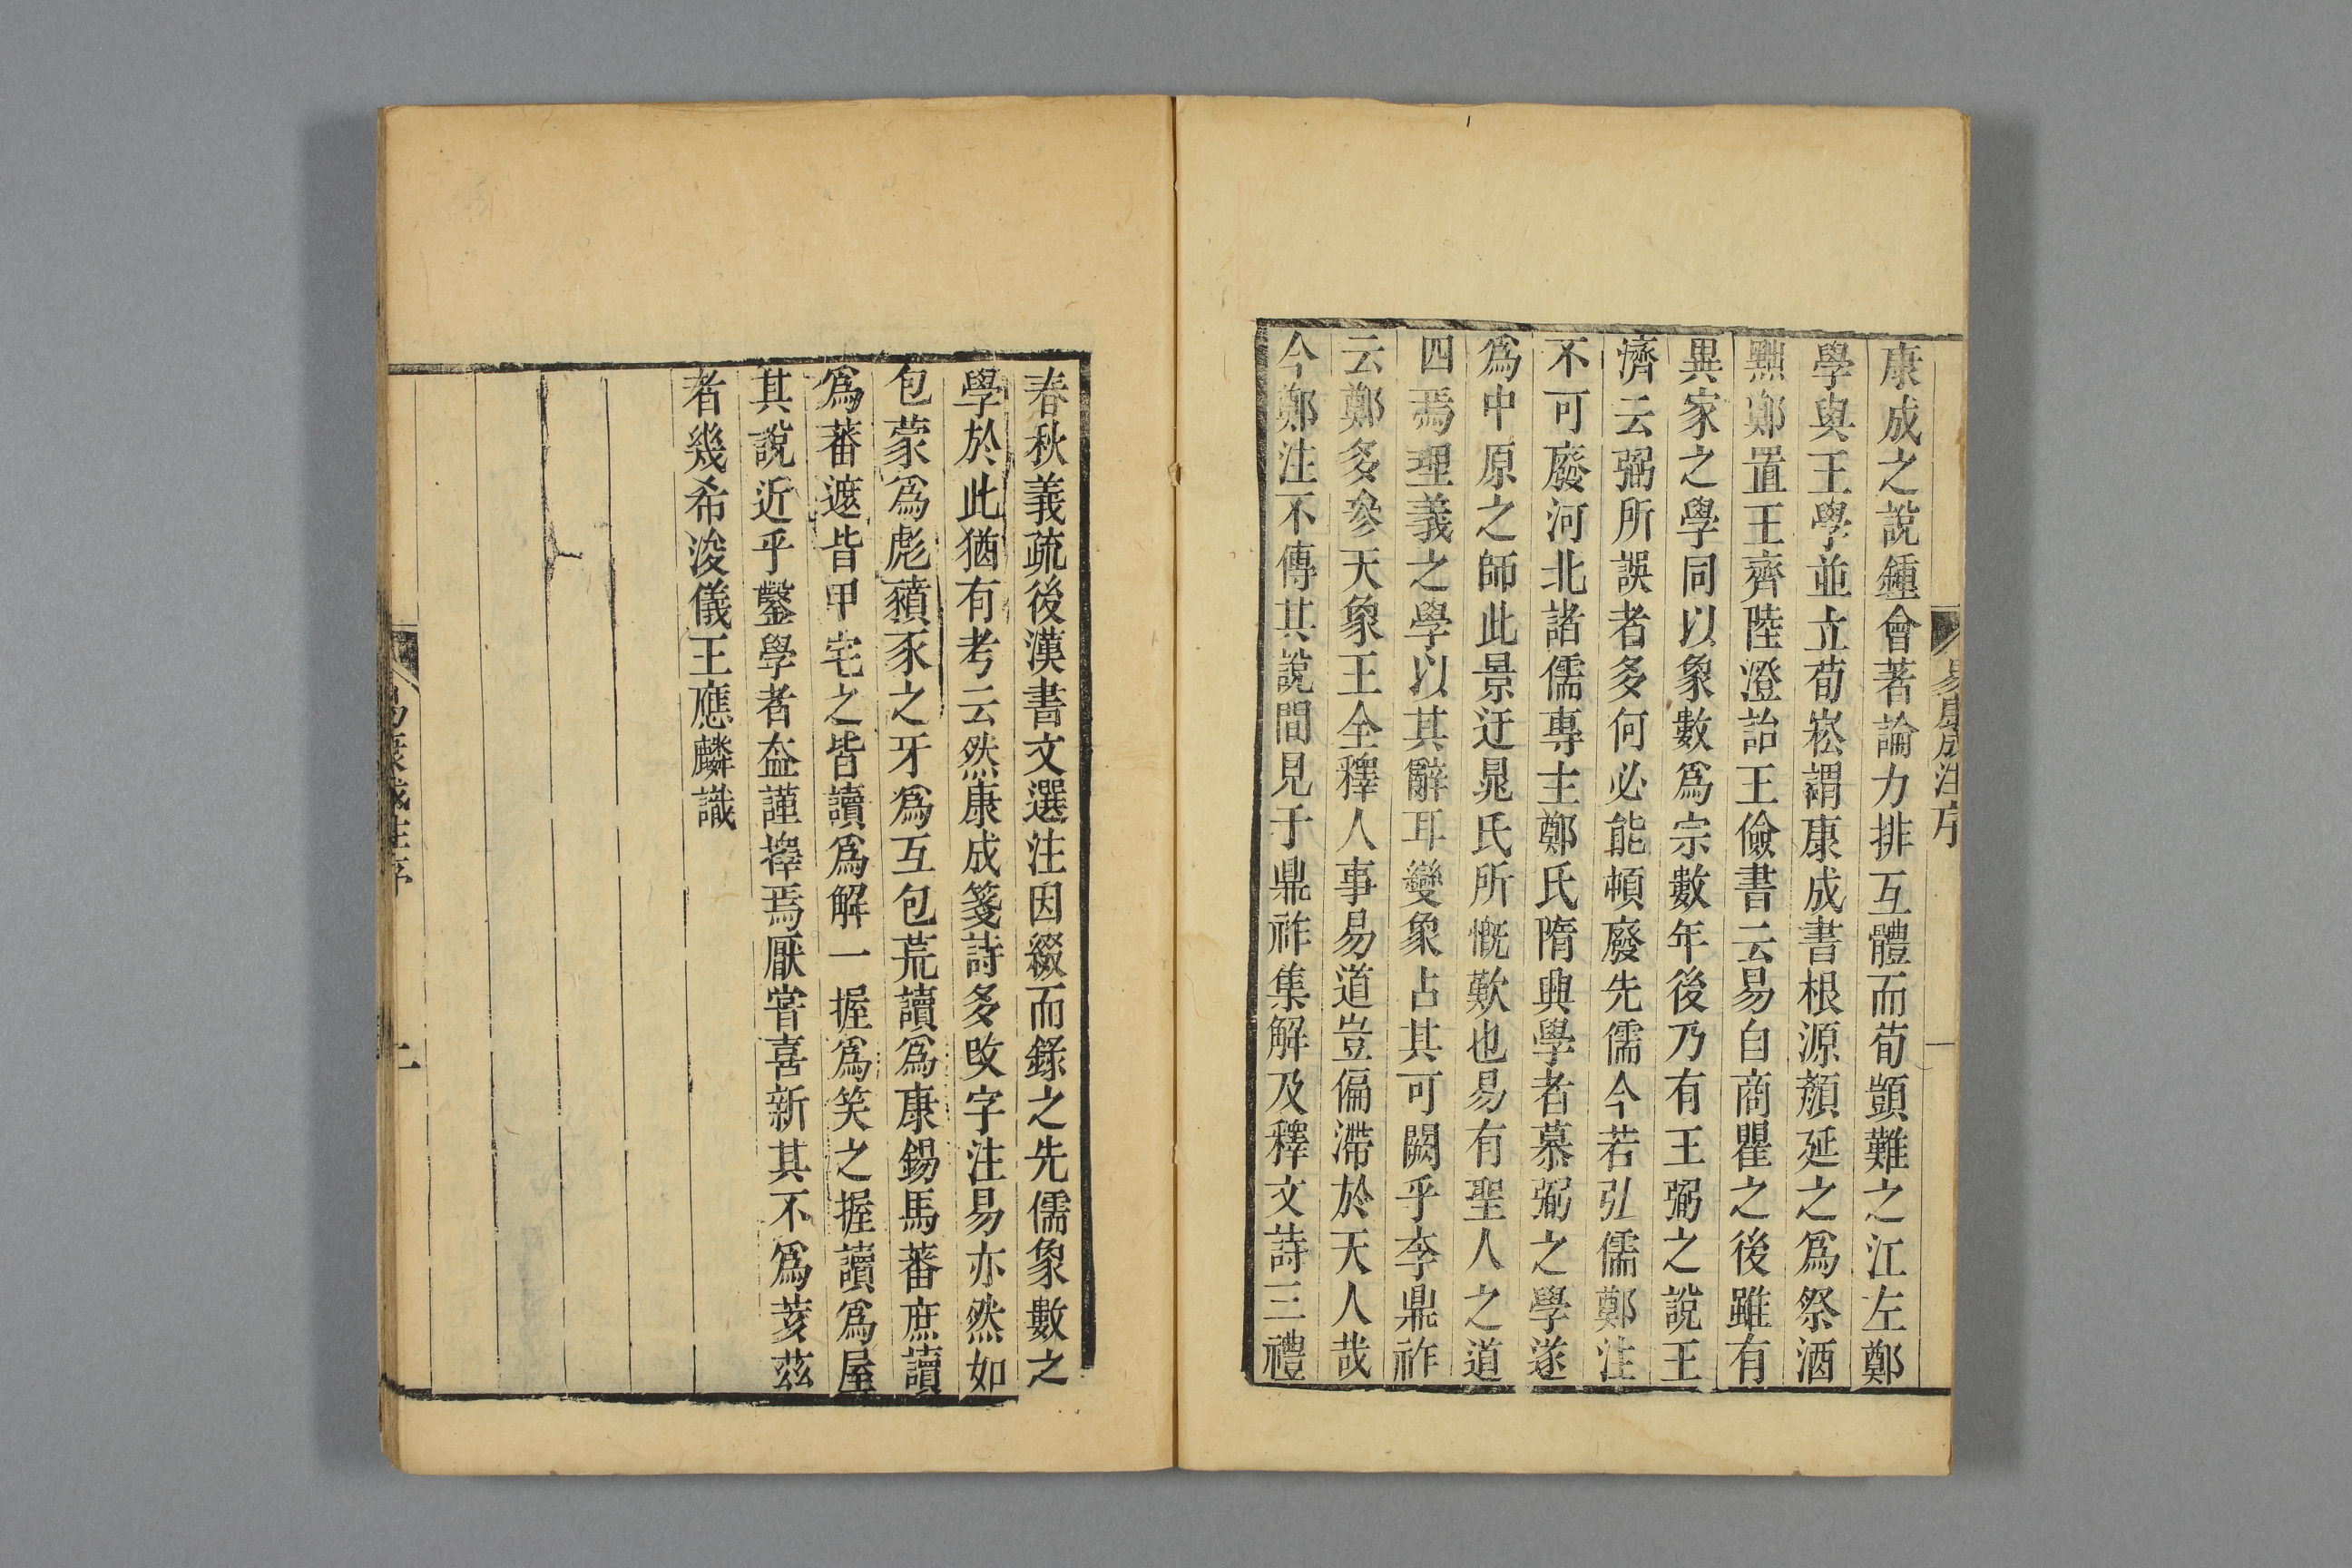 易康成注序
一
康成之說鍾會著論力排互體而荀顗難之江左鄭
學與王學並立荀崧謂康成書根源顏延之爲祭酒
黜鄭置王齊陸澄詒王儉書云易自商瞿之後雖有
異家之學同以象數爲宗數年後乃有王弼之說王
濟云弼所誤者多何必能頓廢先儒今若弘儒鄭注
不可廢河北諸儒專主鄭氏隋興學者慕弼之學遂
爲中原之師此景迂晁氏所慨歎也易有聖人之道
四焉理義之學以其辭耳變象占其可闕乎李鼎祚
云鄭多參天象王全釋人事易道豈偏滯於天人哉
今鄭注不傳其說間見于鼎祚集解及釋文詩三禮
春秋義疏後漢書文選注因綴而錄之先儒象數之
學於此猶有考云然康成箋詩多改字注易亦然如
包蒙爲彪豶豕之牙爲互包荒讀爲康錫馬蕃庶讀
爲蕃遮皆甲宅之皆讀爲解一握爲笑之握讀爲屋
其說近乎鑿學者盍謹擇焉厭常喜新其不爲荄茲
者幾希浚儀王應麟識
易康成注序
二